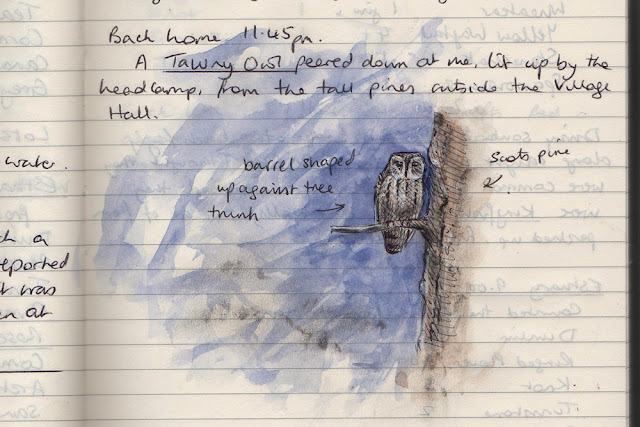 Back home 11.45pm.
A Tawny Owl peered down at me, lit up by the
headlamp, from the tall pines outside the Village
Hall.
barrel shaped
up against tree
trunk
Scots pine
water.
a
reported
was
at